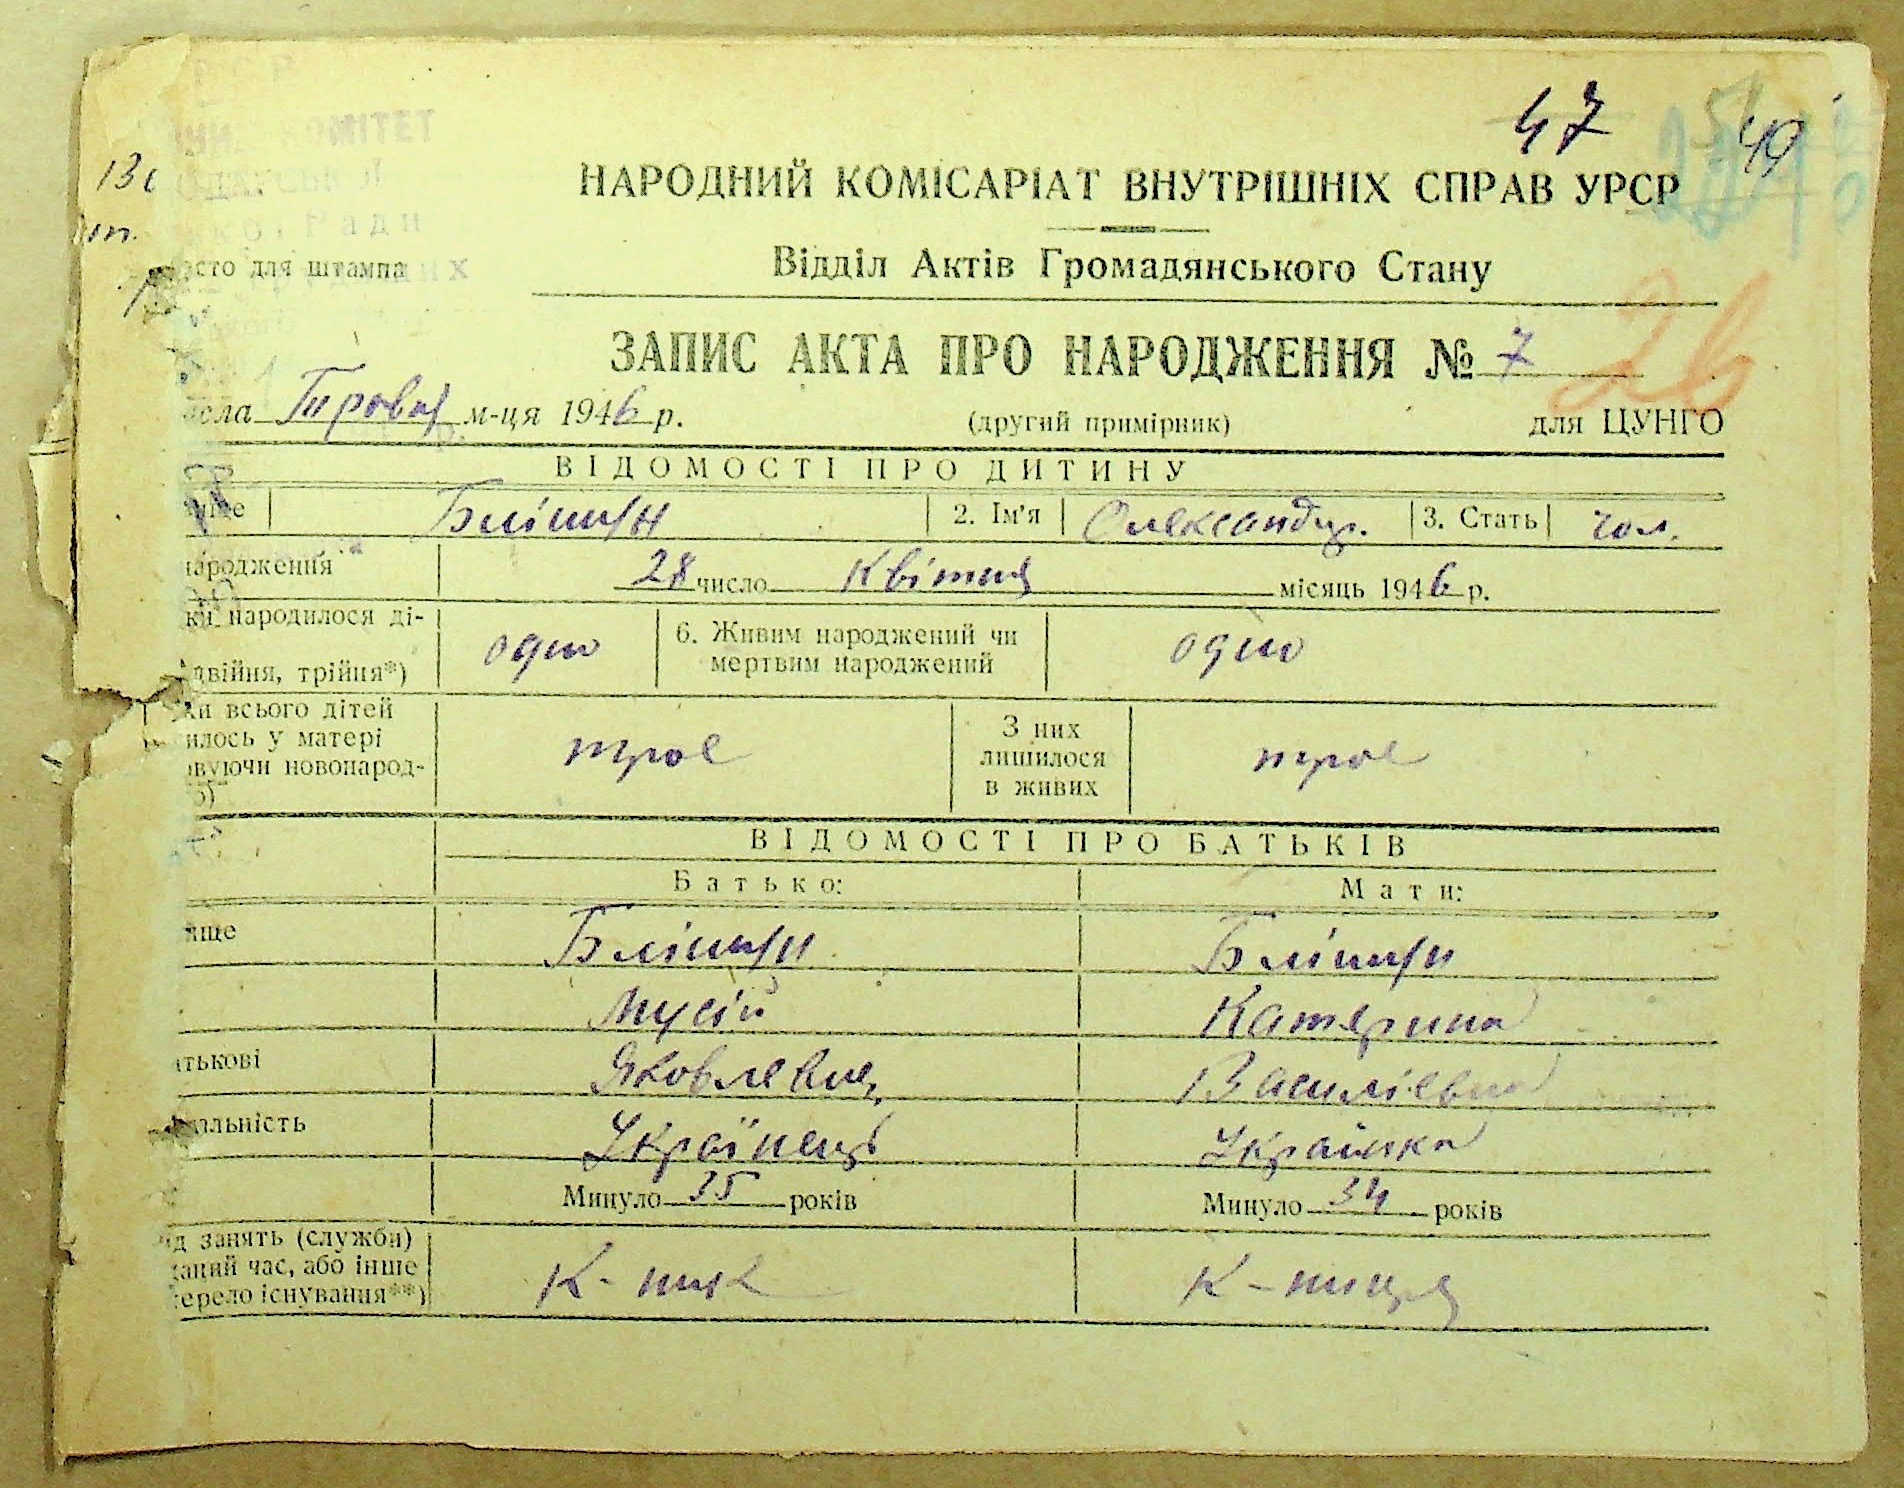 47 49
НАРОДНИЙ КОМІСАРІАТ ВНУТРІШНІХ СПРАВ УРСР
Відділ Актів Громадянського Стану
сто для штампа
ЗАПИС АКТА ПРО НАРОДЖЕННЯ № 7
26
сла Травня м-ця 1946 р. (другий примірник) для ЦУНГО
ВІДОМОСТІ ПРО ДИТИНУ
2. Ім'я Олександр. 3. Стать чол.
народження 28 число Квітня місяць 1946 р.
ки народилося ді-
двійня, трійня*) одно 6. Живим народжений чи мертвим народжений одно
ки всього дітей
илось у матері
овуючи новонарод- троє З них лишилося в живих троє
ВІДОМОСТІ ПРО БАТЬКІВ
Батько: Мати:
ище
Мусій Катерина
атькові Яковлевич Василіевна
альність Українець Українка
Минуло 35 років Минуло 34 років
ид занять (служби)
даний час, або інше
ерело існування**) К-ник К-ниця